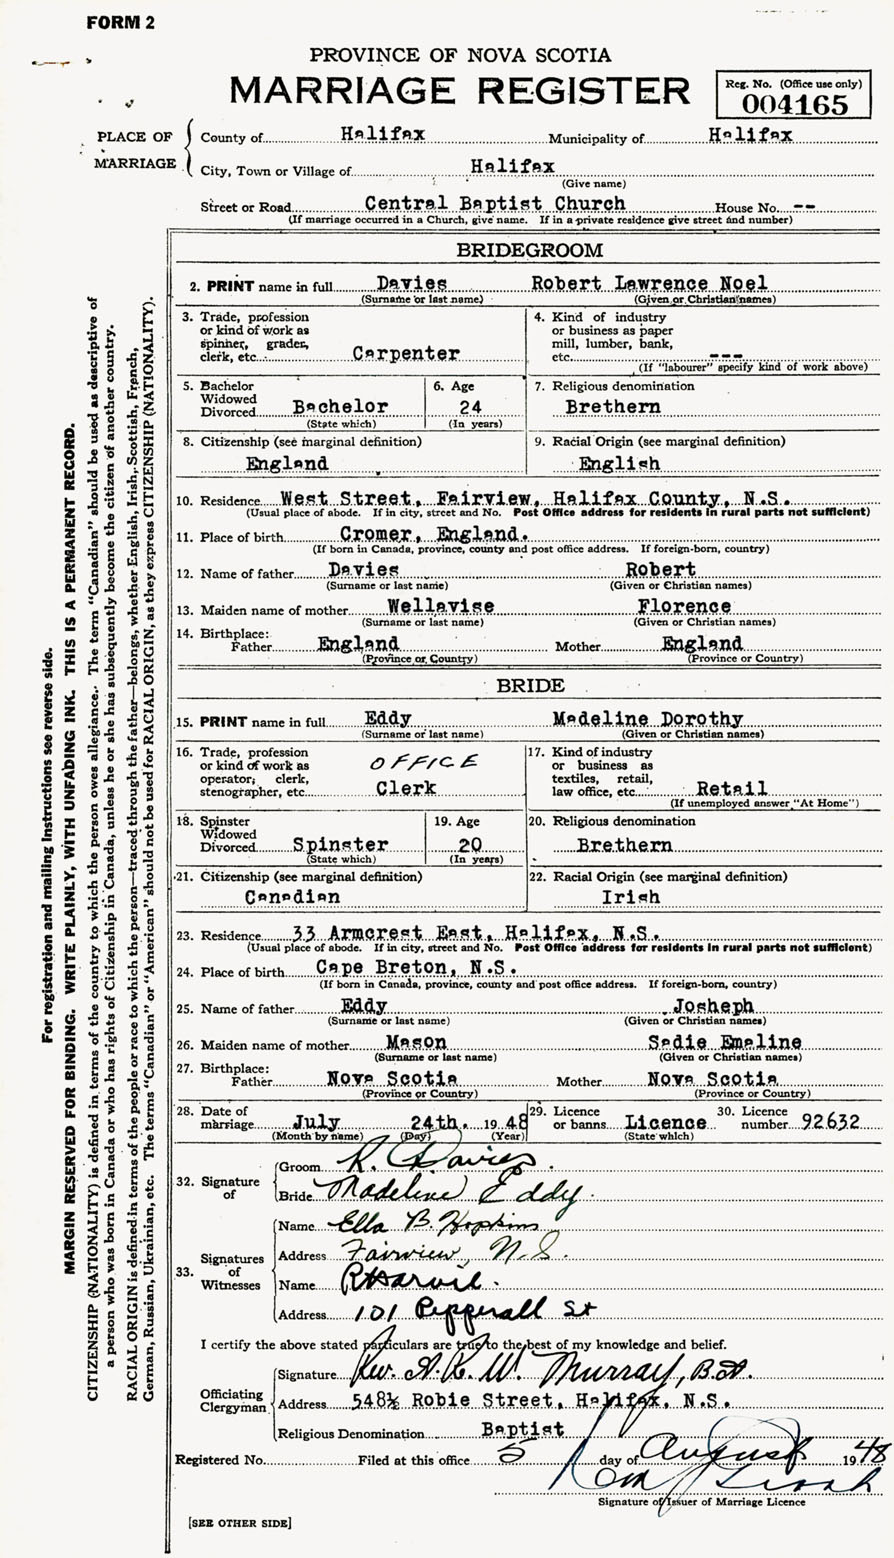 FORM 2
PROVINCE OF NOVA SCOTIA
MARRIAGE REGISTER
Reg. No. (Office use only)
004165
PLACE OF MARRIAGE
County of Halifax Municipality of Halifax
City, Town or Village of Halifax
(Give name)
Street or Road Central Baptist Church House No. --
(If marriage occurred in a Church, give name. If in a private residence give street and number)
BRIDEGROOM
2. PRINT name in full Davies Robert Lawrence Noel
(Surname or last name) (Given or Christian names)
3. Trade, profession or kind of work as spinner, grader, clerk, etc. Carpenter
4. Kind of industry or business as paper mill, lumber, bank, etc. ---
(If "labourer" specify kind of work above)
5. Bachelor Widowed Divorced Bachelor
(State which)
6. Age 24
(In years)
7. Religious denomination
Brethern
8. Citizenship (see marginal definition)
England
9. Racial Origin (see marginal definition)
English
10. Residence West Street, Fairview, Halifax County, N.S.
(Usual place of abode. If in city, street and No. Post Office address for residents in rural parts not sufficient)
11. Place of birth Cromer, England.
(If born in Canada, province, county and post office address. If foreign-born, country)
12. Name of father Davies Robert
(Surname or last name) (Given or Christian names)
13. Maiden name of mother Wellavise Florence
(Surname or last name) (Given or Christian names)
14. Birthplace:
Father England Mother England
(Province or Country) (Province or Country)
BRIDE
15. PRINT name in full Eddy Madeline Dorothy
(Surname or last name) (Given or Christian names)
16. Trade, profession or kind of work as operator, clerk, stenographer, etc. OFFICE Clerk
17. Kind of industry or business as textiles, retail, law office, etc. Retail
(If unemployed answer "At Home")
18. Spinster Widowed Divorced Spinster
(State which)
19. Age 20
(In years)
20. Religious denomination
Brethern
21. Citizenship (see marginal definition)
Canadian
22. Racial Origin (see marginal definition)
Irish
23. Residence 33 Armcrest East, Halifax, N.S.
(Usual place of abode. If in city, street and No. Post Office address for residents in rural parts not sufficient)
24. Place of birth Cape Breton, N.S.
(If born in Canada, province, county and post office address. If foreign-born, country)
25. Name of father Eddy Josheph
(Surname or last name) (Given or Christian names)
26. Maiden name of mother Mason Sadie Emaline
(Surname or last name) (Given or Christian names)
27. Birthplace:
Father Nova Scotia Mother Nova Scotia
(Province or Country) (Province or Country)
28. Date of marriage July 24th. 1948
(Month by name) (Day) (Year)
29. Licence or banns Licence
(State which)
30. Licence number 92632
32. Signature of
Groom R. Davies.
Bride Madeline Eddy.
33. Signatures of Witnesses
Name Ella B. Hopkins
Address Fairview, N.S.
Name
Address 101 Pepperall St
I certify the above stated particulars are true to the best of my knowledge and belief.
Officiating Clergyman
Signature Rev. A. K. W. Murray, B.A.
Address 548½ Robie Street, Halifax, N.S.
Religious Denomination Baptist
Registered No. Filed at this office 5 day of August 1948
Signature of Issuer of Marriage Licence
[SEE OTHER SIDE]
For registration and mailing instructions see reverse side.
MARGIN RESERVED FOR BINDING. WRITE PLAINLY, WITH UNFADING INK. THIS IS A PERMANENT RECORD.
CITIZENSHIP (NATIONALITY) is defined in terms of the country to which the person owes allegiance. The term "Canadian" should be used as descriptive of
a person who was born in Canada or who has rights of Citizenship in Canada, unless he or she has subsequently become the citizen of another country.
RACIAL ORIGIN is defined in terms of the people or race to which the person—traced through the father—belongs, whether English, Irish, Scottish, French,
German, Russian, Ukrainian, etc. The terms "Canadian" or "American" should not be used for RACIAL ORIGIN, as they express CITIZENSHIP (NATIONALITY).